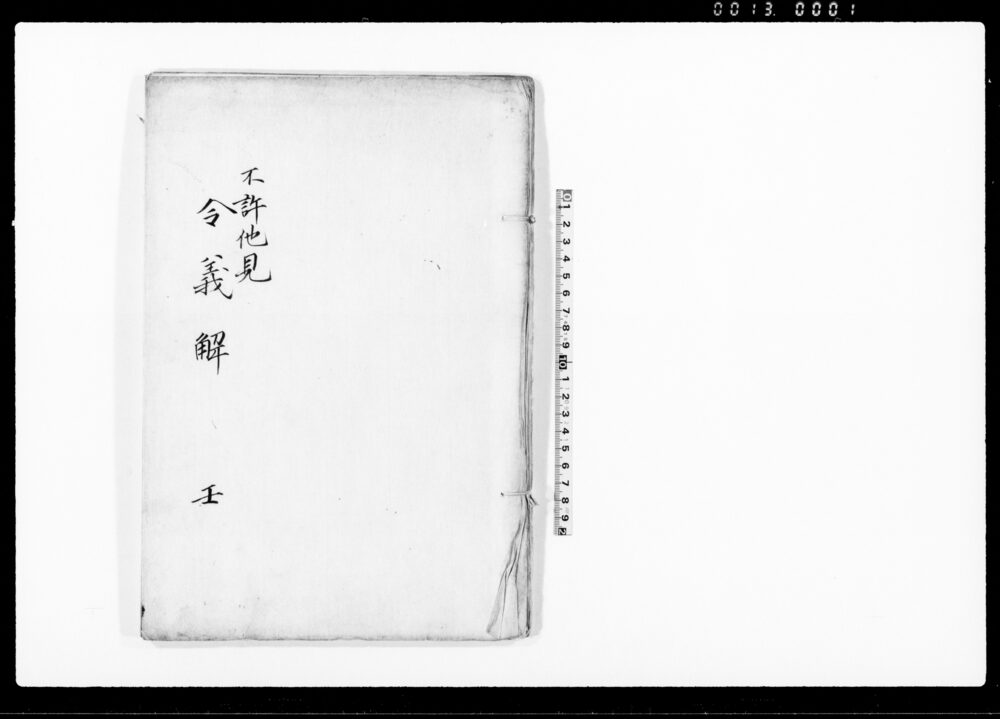 0013. 0001
不許他見
令義解 壬
0 1 2 3 4 5 6 7 8 9 10 1 2 3 4 5 6 7 8 9 2